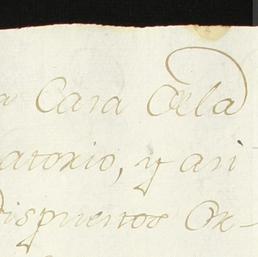 Casa de la
atorio, y asi
dispuestos Or-